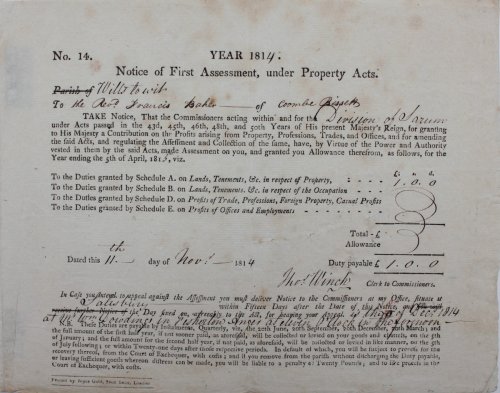 No. 14. YEAR 1814.
Notice of First Assessment, under Property Acts.
Parish of Wilts to wit
To the Revd. Francis Baker of Coombe Bissett
TAKE Notice, That the Commissioners acting within and for the Division of Sarum
under Acts passed in the 43d, 45th, 46th, 48th, and 50th Years of His present Majesty's Reign, for granting
to His Majesty a Contribution on the Profits arising from Property, Professions, Trades, and Offices, and for amending
the said Acts, and regulating the Assessment and Collection of the same, have, by Virtue of the Power and Authority
vested in them by the said Acts, made Assessment on you, and granted you Allowance therefrom, as follows, for
the Year ending the 5th of April, 1815, viz.
To the Duties granted by Schedule A. on Lands, Tenements, &c. in respect of Property, 1.0.0
To the Duties granted by Schedule B. on Lands, Tenements, &c. in respect of the Occupation
To the Duties granted by Schedule D. on Profits of Trade, Professions, Foreign Property, Casual Profits
To the Duties granted by Schedule E. on Profits of Offices and Employments
Total £
Allowance
Dated this 11th day of Novr. 1814 Duty payable £ 1.0.0
Thos. Winch Clerk to Commissioners.
In Case you intend to appeal against the Assessment you must deliver Notice to the Commissioners at my Office, situate at
Salisbury within Fifteen Days after the Date of this Notice,
Notice of the Day fixed on, agreeably to the Act, for hearing Appeals, is the of Decr. 1814
at the
N.B. Their Duties are payable by Instalments, Quarterly, viz. the 20th June, 20th September, 20th December, 20th March; and
the full amount of the first half year, if not paid as aforesaid, may be levied or collected
of January; and for the second half year, if not paid, as aforesaid, is liable to be levied or collected on the
of July following; or within Twenty-one days after those respective periods. In default of which, you will be subject to process for the
recovery thereof, from the Court of Exchequer, with costs; and if you remove from the parish without discharging the Duty payable,
or leaving sufficient goods whereon distress can be made, you will be liable to a penalty
Court of Exchequer, with costs.
Printed by Joyce Gold, Shoe Lane, London